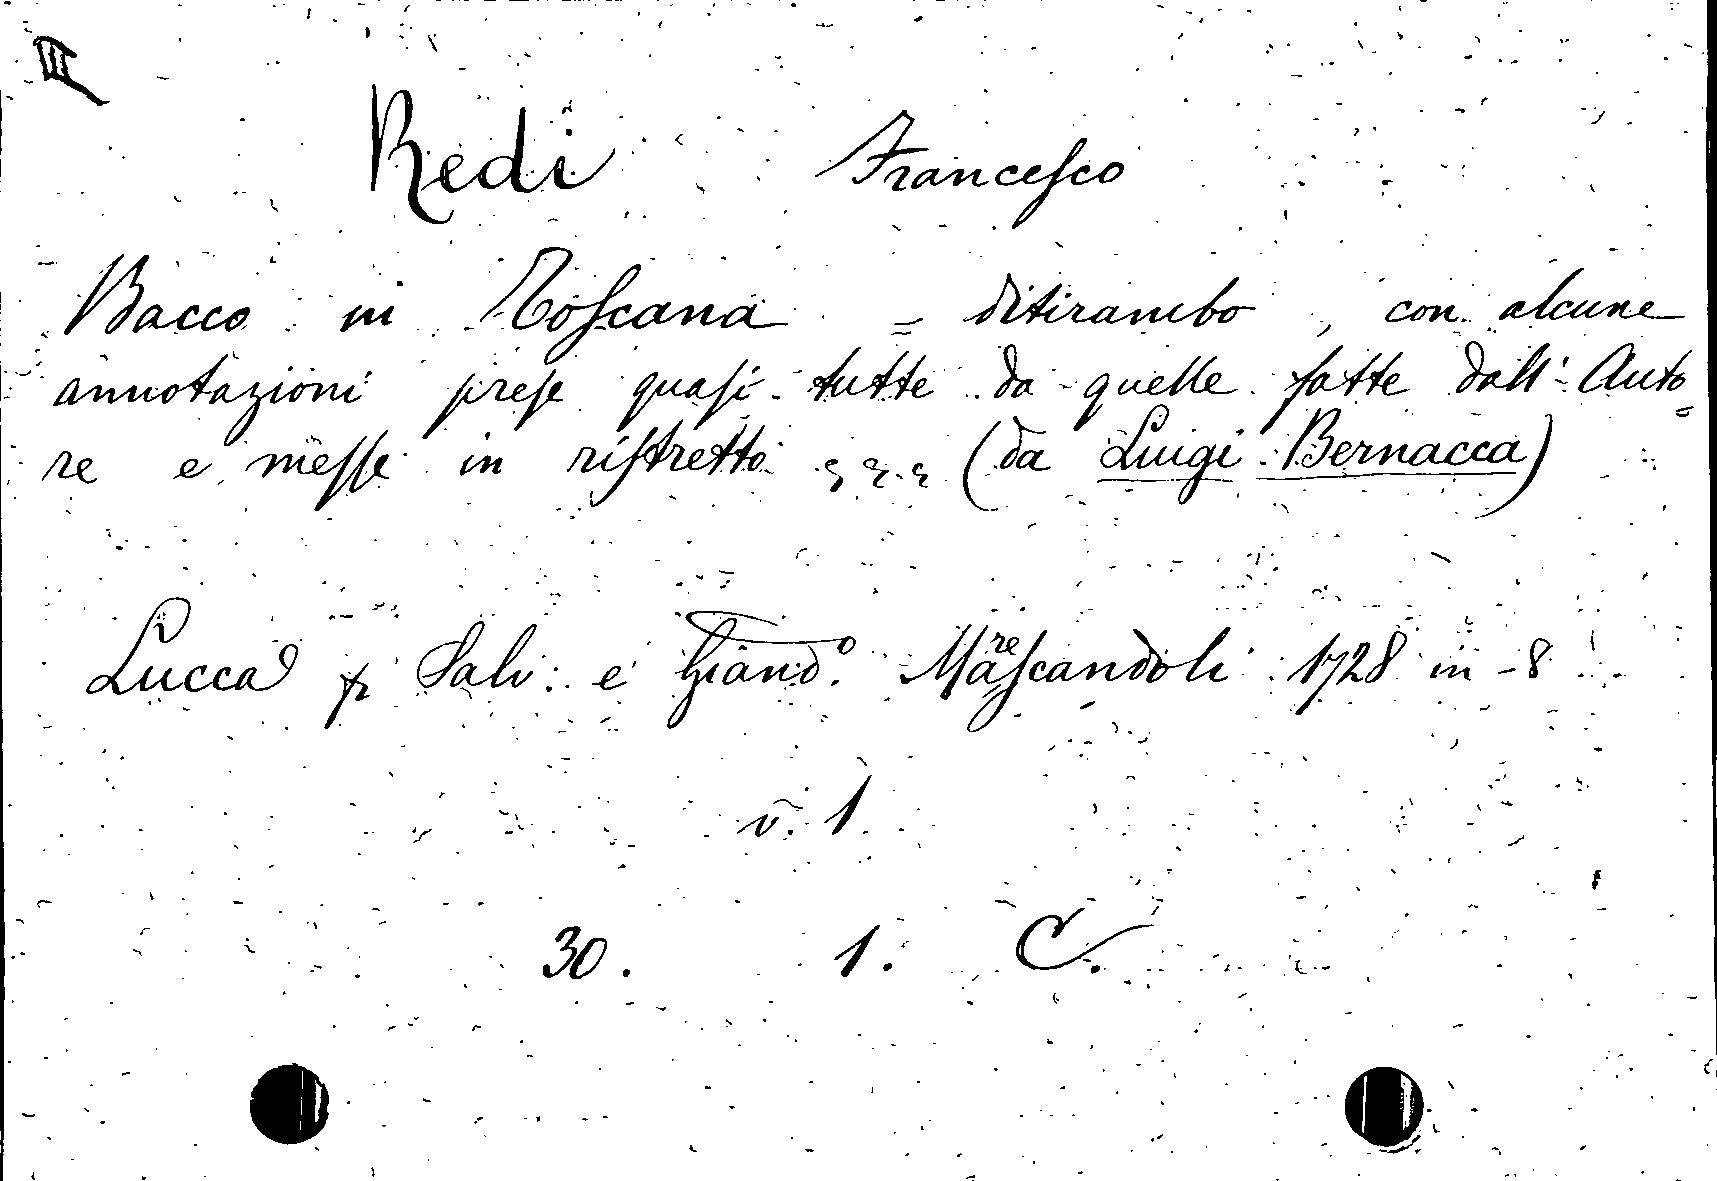 III
Redi Francesco
Bacco in Toscana = ditirambo, con alcune
annotazioni prese quasi tutte da quelle fatte dall'Auto=
re e messe in ristretto (da Luigi Bernacca)
Lucca p Salv: e Giand.º Marescandoli 1728 in-8
v. 1
30. 1. C.